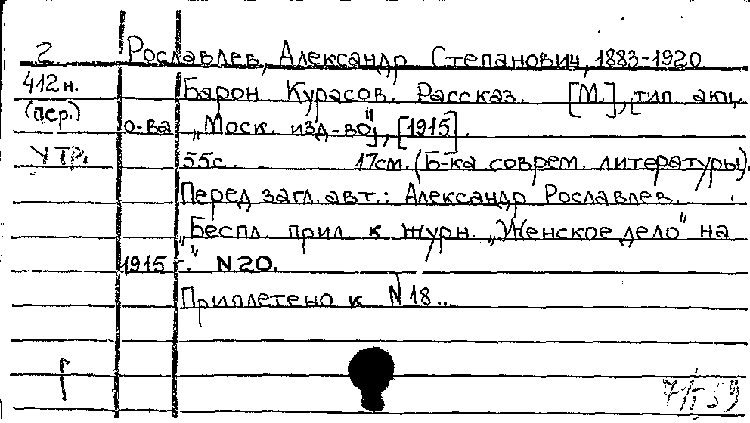 2 Рославлев, Александр Степанович, 1883-1920
412н. Барон Курасов. Рассказ. [М.], [тип. акц.
(пер.) о-ва „Моск. изд-во“], [1915].
УТР. 55с. 17см. (Б-ка соврем. литературы).
Перед загл. авт.: Александр Рославлев.
„Беспл. прил. к журн. „Женское дело“ на
1915 г.“ N20.
Приплетено к N18..